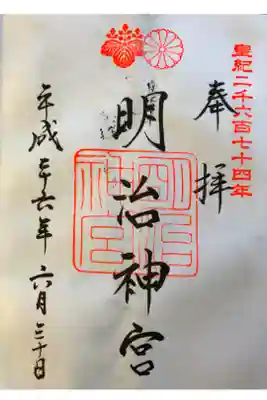 皇紀二千六百七十四年
奉拝
明治神宮
平成二十六年六月三十日